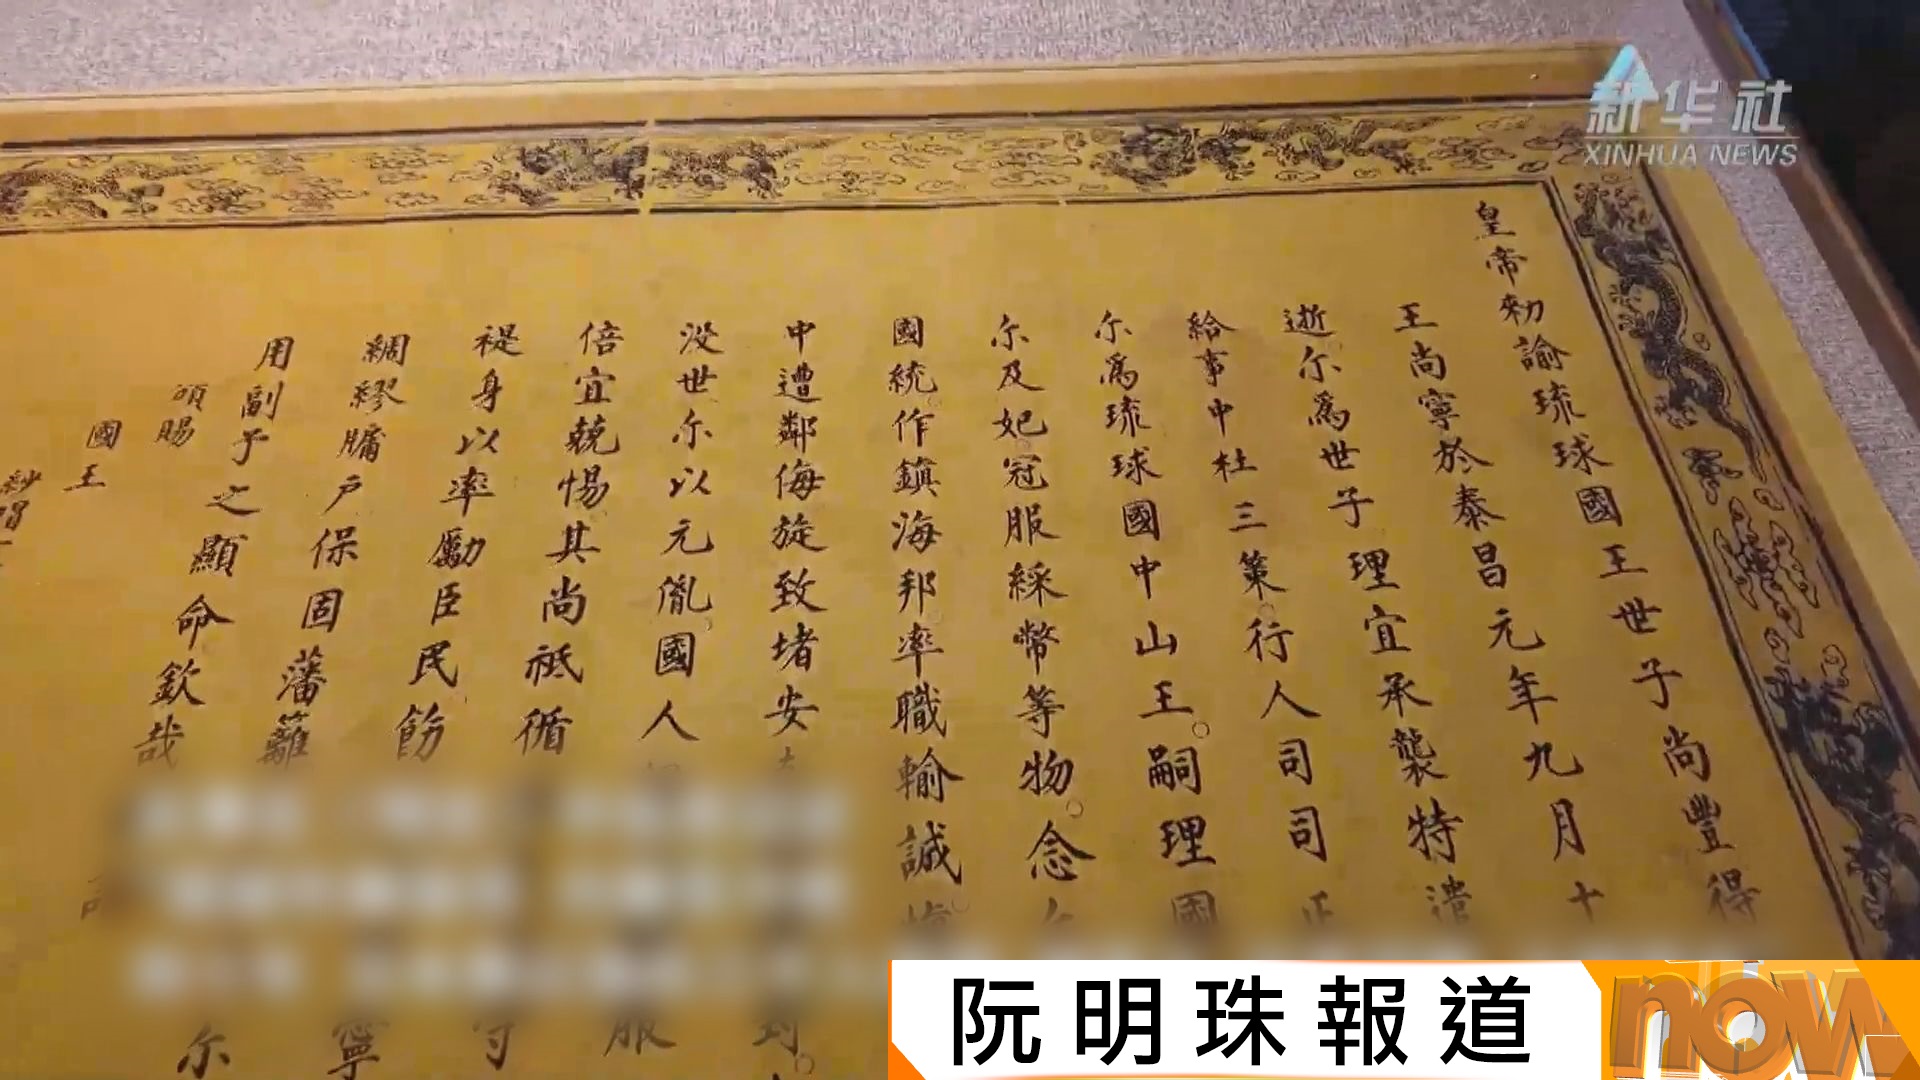 新华社
XINHUA NEWS
皇帝勑諭琉球國王世子尚豐得
王尚寧於泰昌元年九月十
逝尔為世子理宜承襲特遣
給事中杜三策行人司司正
尔為琉球國中山王嗣理國
尔及妃冠服綵幣等物念
國統作鎮海邦率職輸誠
中遭鄰侮旋致堵安
没世尔以元胤國人
倍宜兢惕其尚祗循
禔身以率勵臣民飭
綢繆牖户保固藩籬
用副予之顯命欽哉
頒賜
國王
尔
寧
守
服
阮明珠報道
now